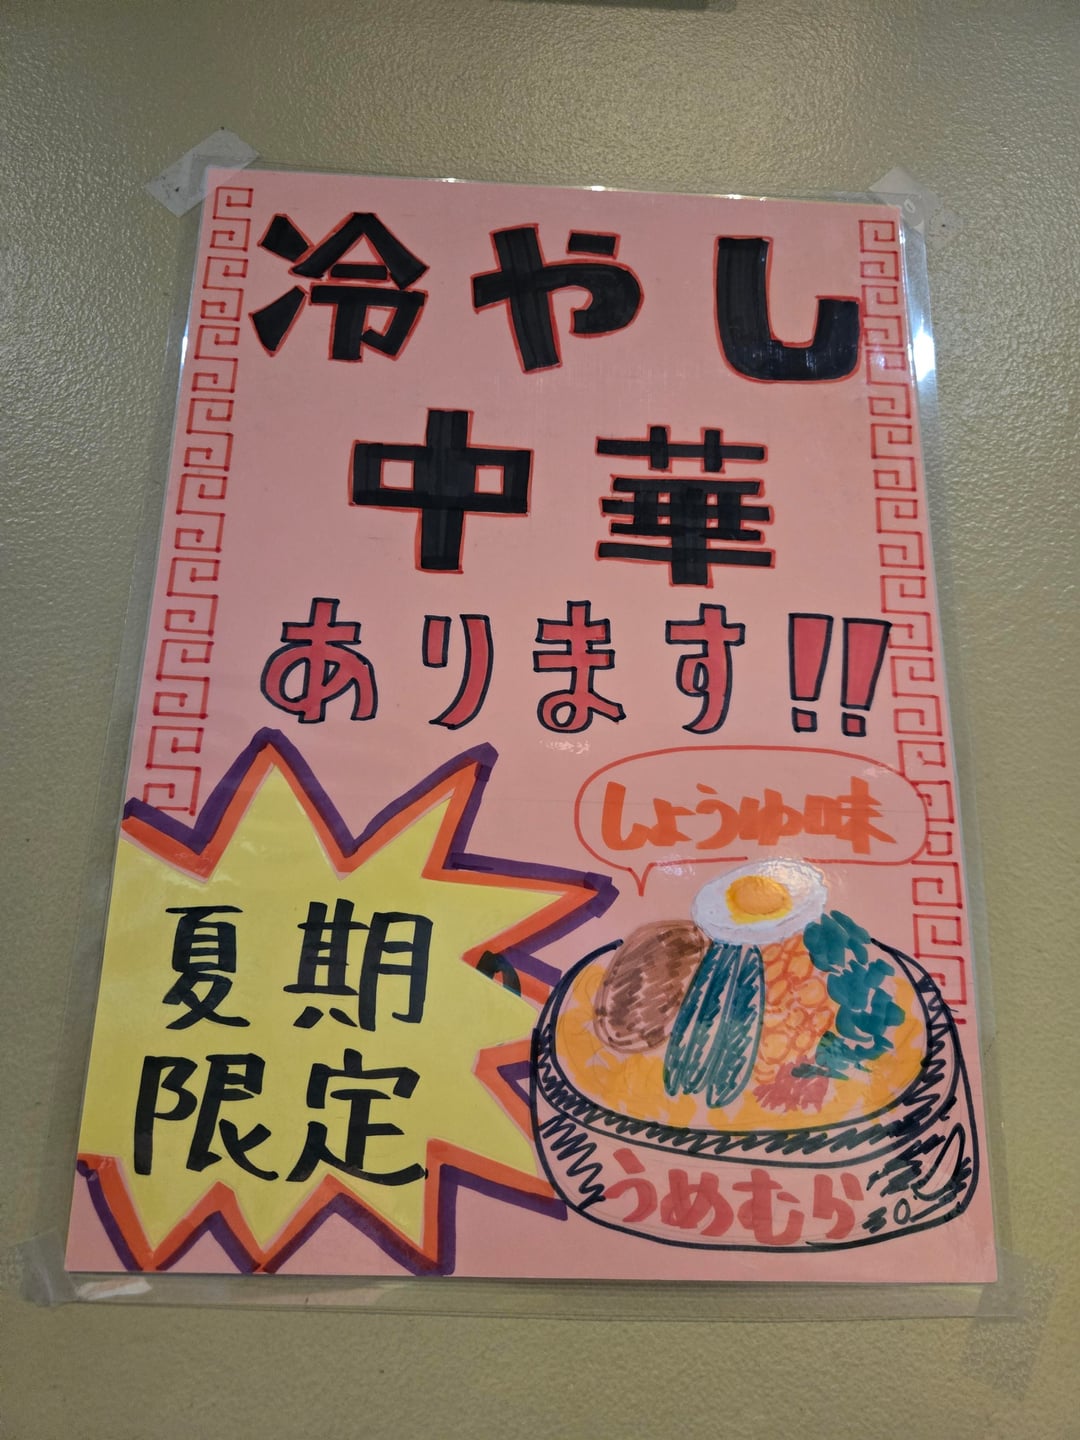 冷やし
中華
あります!!
しょうゆ味
夏期
限定
うめむら